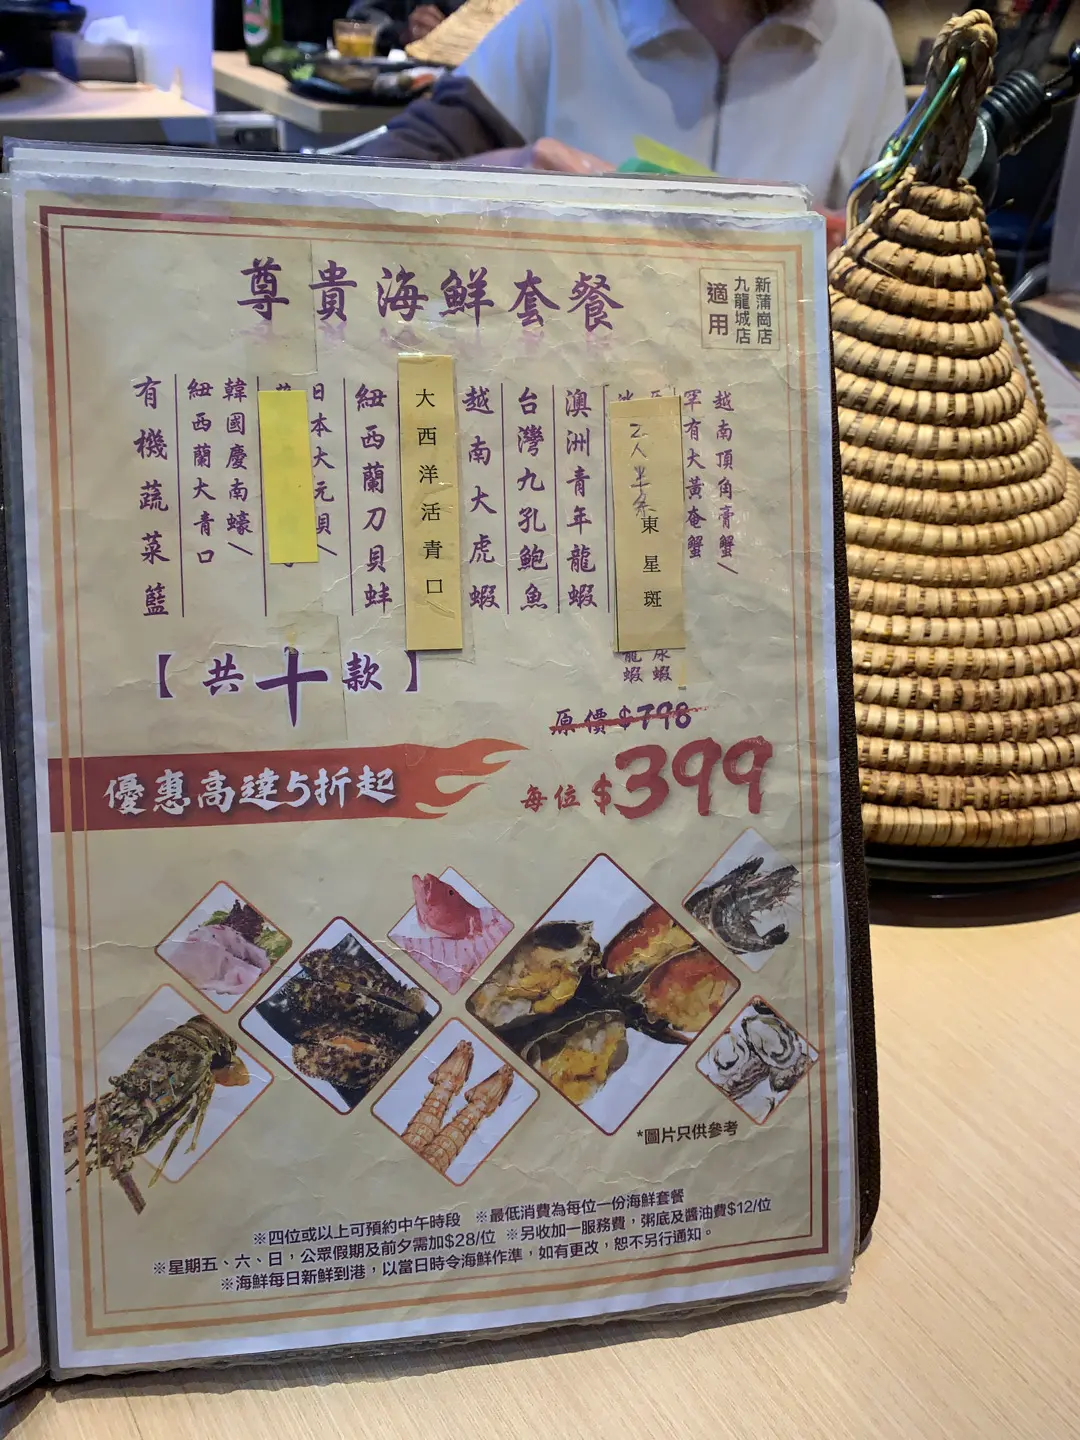 尊貴海鮮套餐
新蒲崗店
九龍城店
適用
越南頂角膏蟹/
罕有大黃奄蟹
尿蝦
2人半条
東星斑
龍蝦
澳洲青年龍蝦
台灣九孔鮑魚
越南大虎蝦
大西洋活青口
紐西蘭刀貝蚌
日本大元貝/
韓國慶南蠔/
紐西蘭大青口
有機蔬菜籃
【共十款】
原價$798
優惠高達5折起
每位$399
*圖片只供參考
※四位或以上可預約中午時段 ※最低消費為每位一份海鮮套餐
※星期五、六、日，公眾假期及前夕需加$28/位 ※另收加一服務費，粥底及醬油費$12/位
※海鮮每日新鮮到港，以當日時令海鮮作準，如有更改，恕不另行通知。